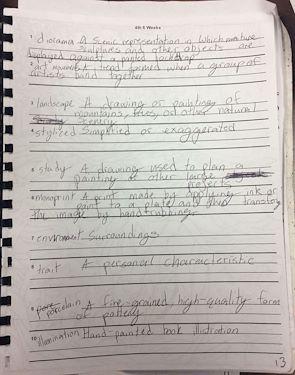 4th 6 Weeks
1 diorama A Scenic representation in which mature
sculptures and other objects are
displayed against a painted backdrop
2 art movement A trend formed when a group of
artists band together
3 landscape A drawing or painting of
mountains, trees, or other natural
scenery
4 stylized Simplified or exaggerated
5 study A drawing used to plan a
painting or other large
projects
6 monoprint A print made by applying ink or
paint to a plate and then transfering
the image by hand rubbing
7 environment Surroundings
8 trait A personal characteristic
porcelain A fine-grained, high-quality form
of pottery
10 illumination Hand-painted book illistration
13